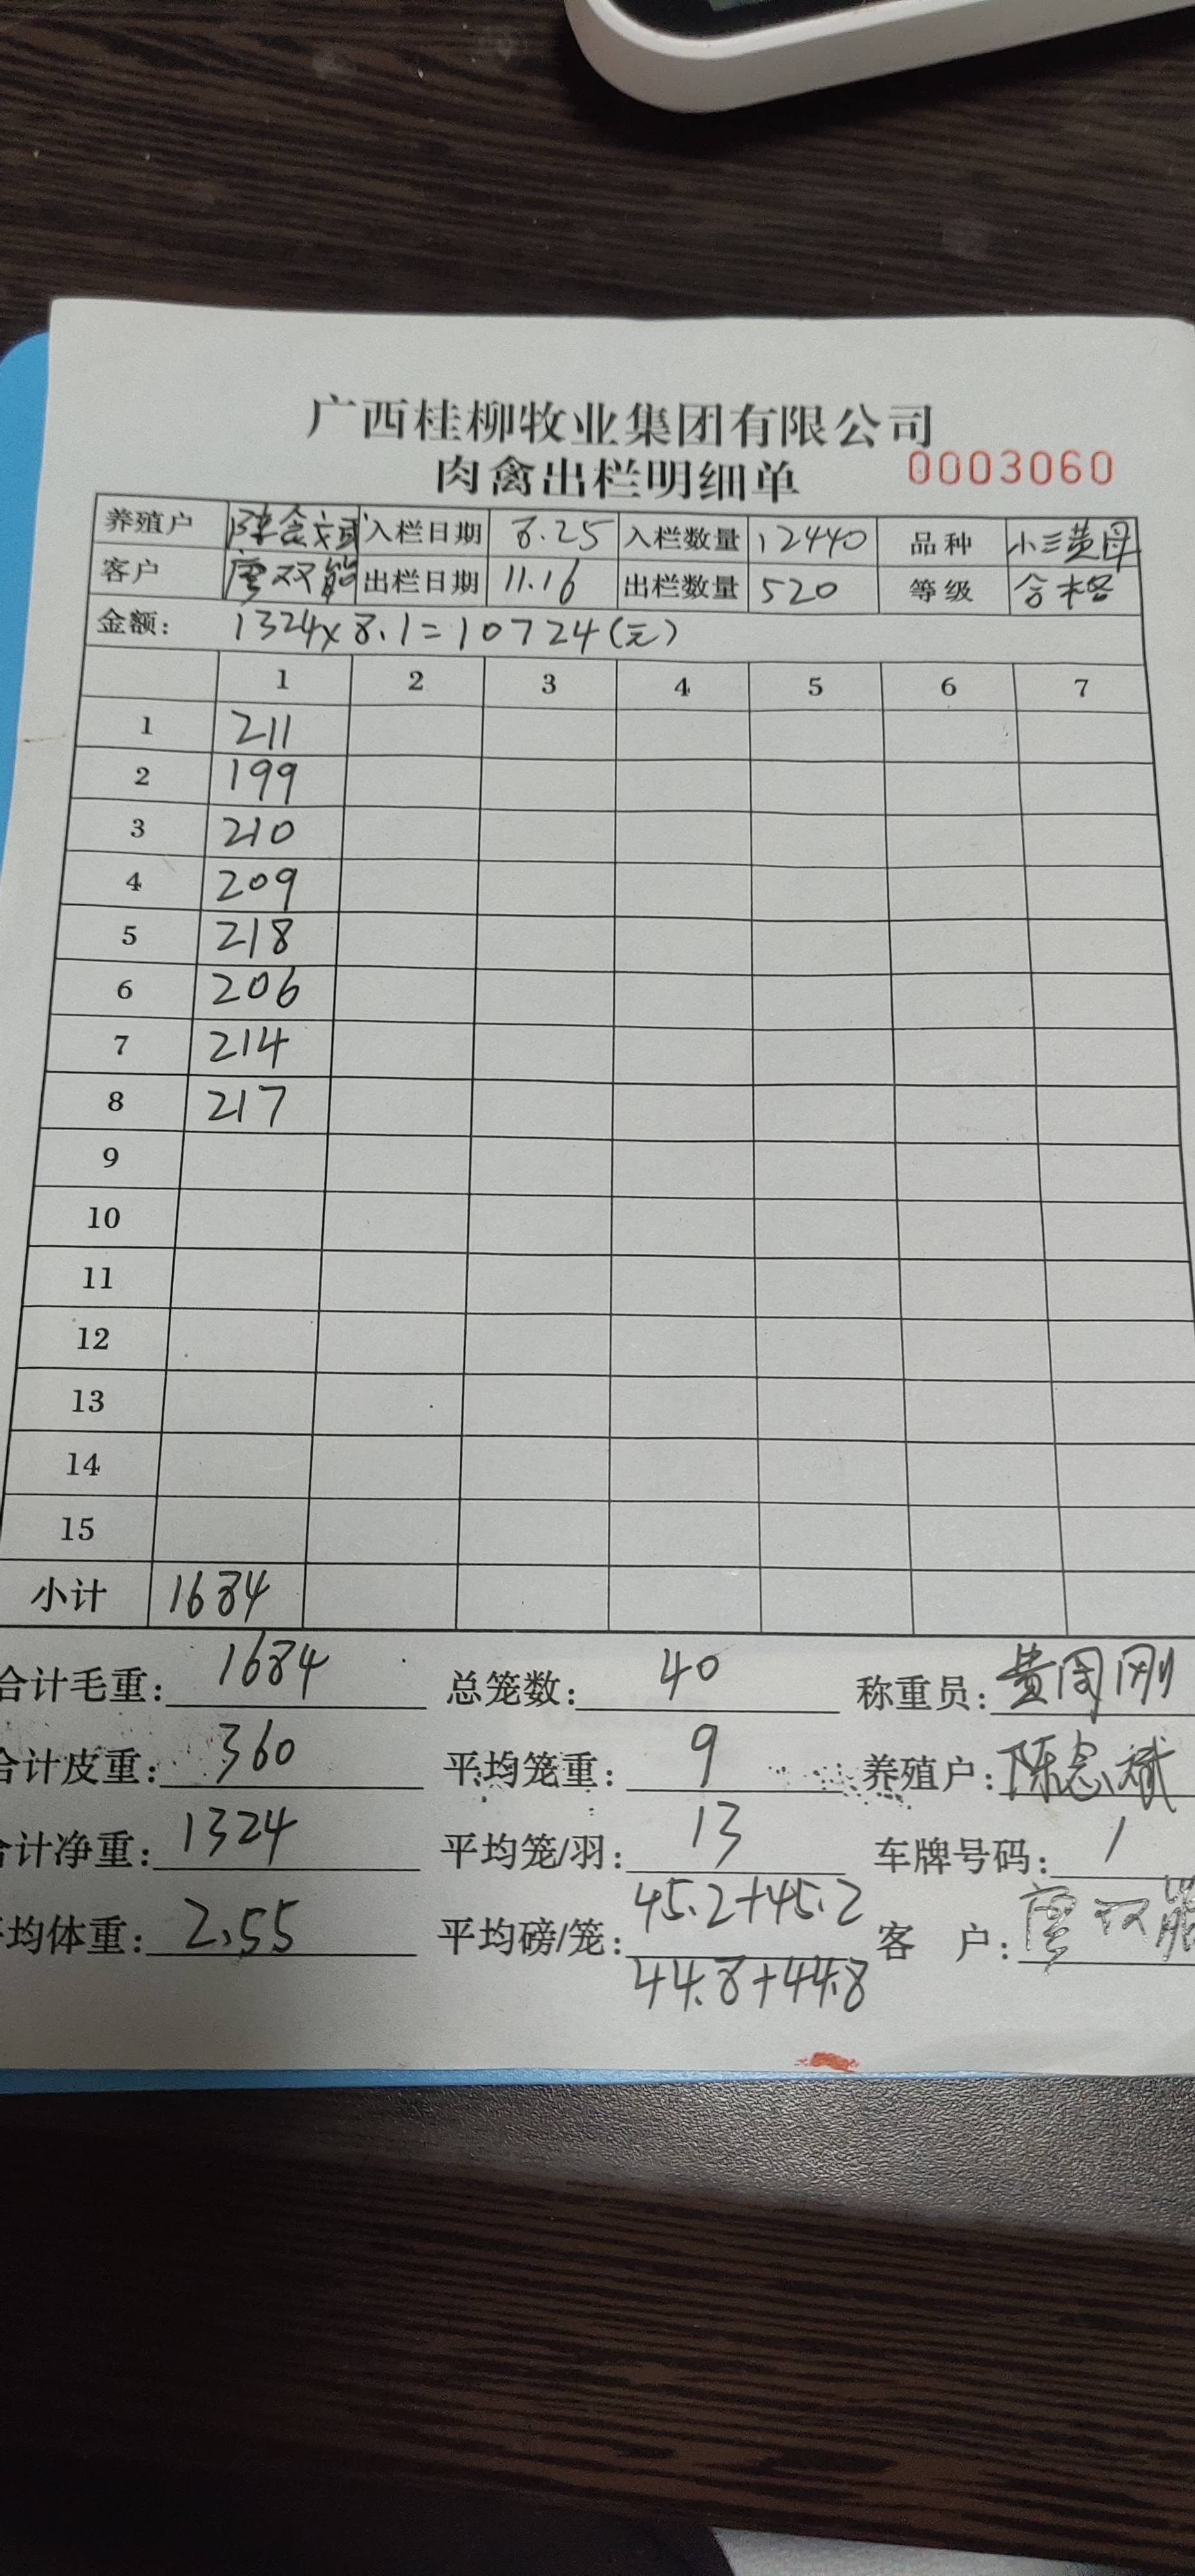 广西桂柳牧业集团有限公司
肉禽出栏明细单 0003060
养殖户 陈念斌 入栏日期 8.25 入栏数量 12440 品种 小三黄母
客户 廖双能 出栏日期 11.16 出栏数量 520 等级 合格
金额： 1324×8.1=10724(元)
1 2 3 4 5 6 7
1 211
2 199
3 210
4 209
5 218
6 206
7 214
8 217
9
10
11
12
13
14
15
小计 1684
合计毛重： 1684 总笼数： 40 称重员： 黄周刚
合计皮重： 360 平均笼重： 9 养殖户： 陈念斌
合计净重： 1324 平均笼/羽： 13 车牌号码： /
平均体重： 2.55 平均磅/笼： 45.2+45.2 客 户： 廖双能
44.8+44.8